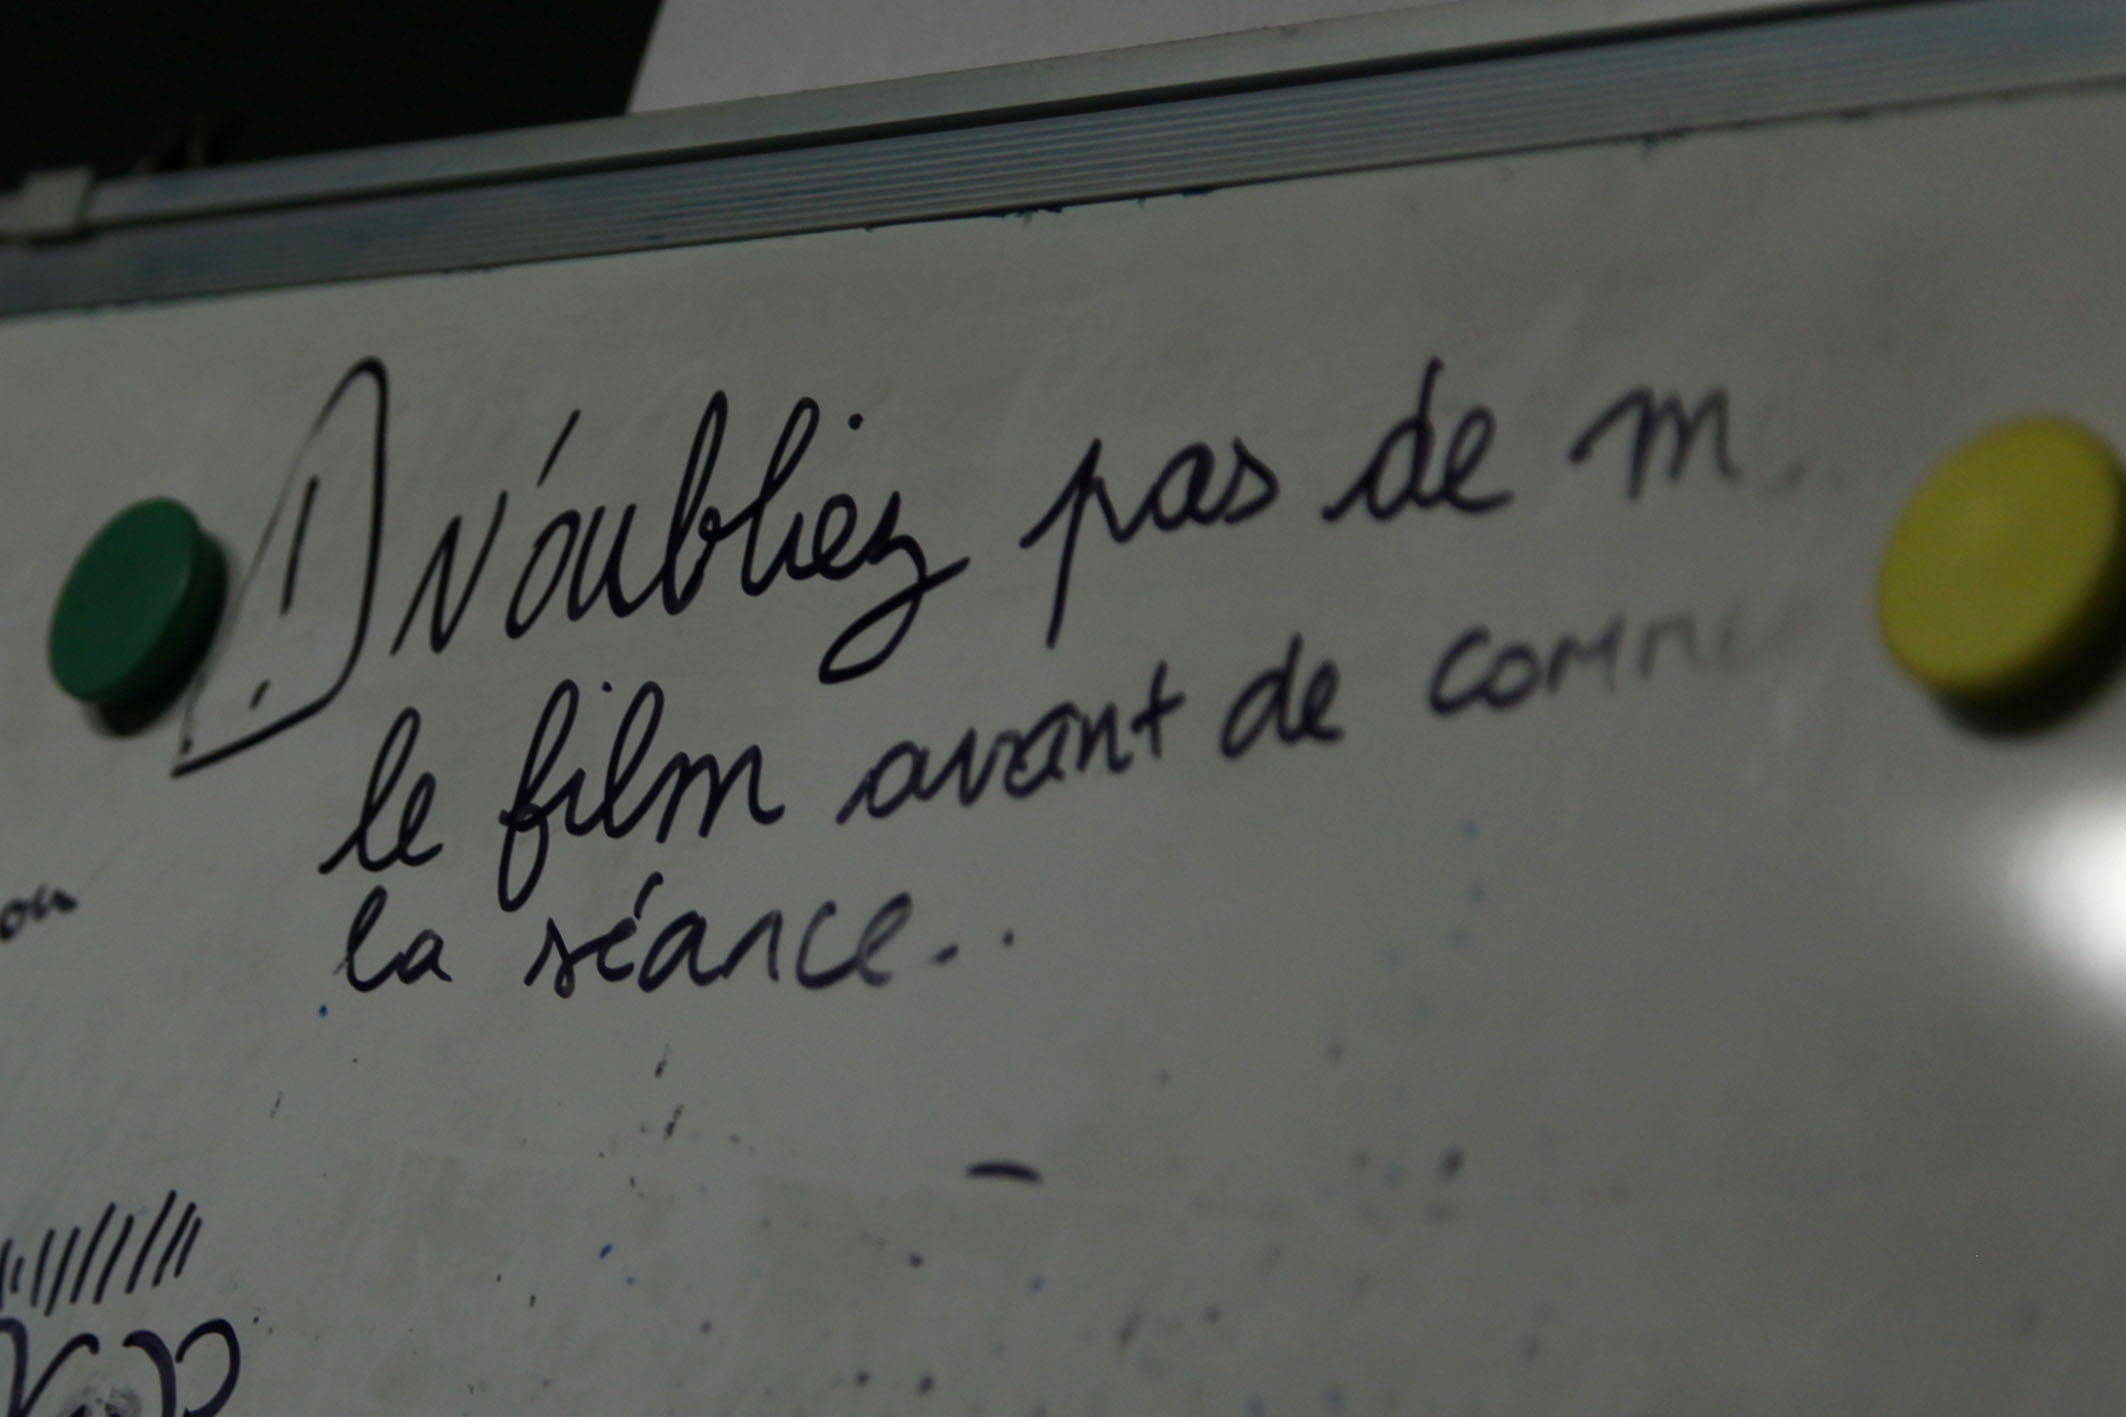 ! N'oubliez pas de m
le film avant de comm
la séance..
on